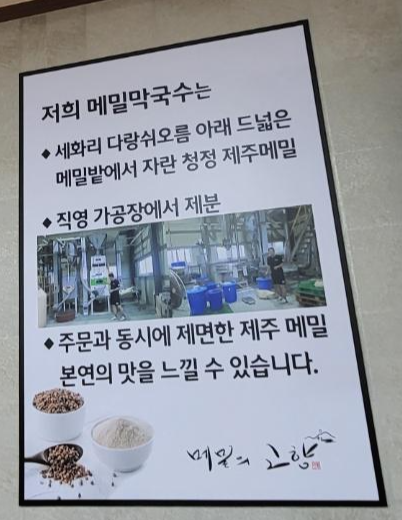 저희 메밀막국수는
◆ 세화리 다랑쉬오름 아래 드넓은
메밀밭에서 자란 청정 제주메밀
◆ 직영 가공장에서 제분
◆ 주문과 동시에 제면한 제주 메밀
본연의 맛을 느낄 수 있습니다.
메밀의 고향